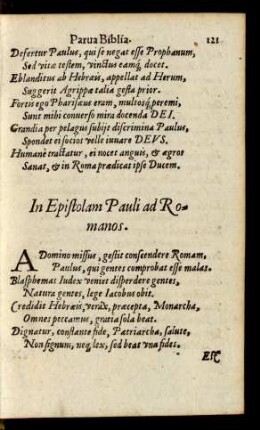 Parua Biblia. 121
Defertur Paulus, qui se negat esse Prophanum,
Sed vitæ testem, vinctus eamq́; docet.
Eblanditus ab Hebræis, appellat ad Herum,
Suggerit Agrippæ talia gesta prior.
Fortis ego Pharisæus eram, multosq́; peremi,
Sunt mihi conuerso mira docenda DEI.
Grandia per pelagus subijt discrimina Paulus,
Spondet ei socios velle iuuare DEVS.
Humanè tractatur, ei nocet anguis, & ægros
Sanat, & in Roma prædicat ipse Ducem.
In Epistolam Pauli ad Ro-
manos.
A Domino missus, gestit conscendere Romam,
Paulus, qui gentes comprobat esse malas.
Blasphemas Iudex veniet disperdere gentes,
Natura gentes, lege Iacobus obit.
Credidit Hebræis, verax, præcepta, Monarcha,
Omnes peccamus, gratia sola beat.
Dignatur, constante fide, Patriarcha, salute,
Non signum, neq; lex, sed beat vna fides.
Est